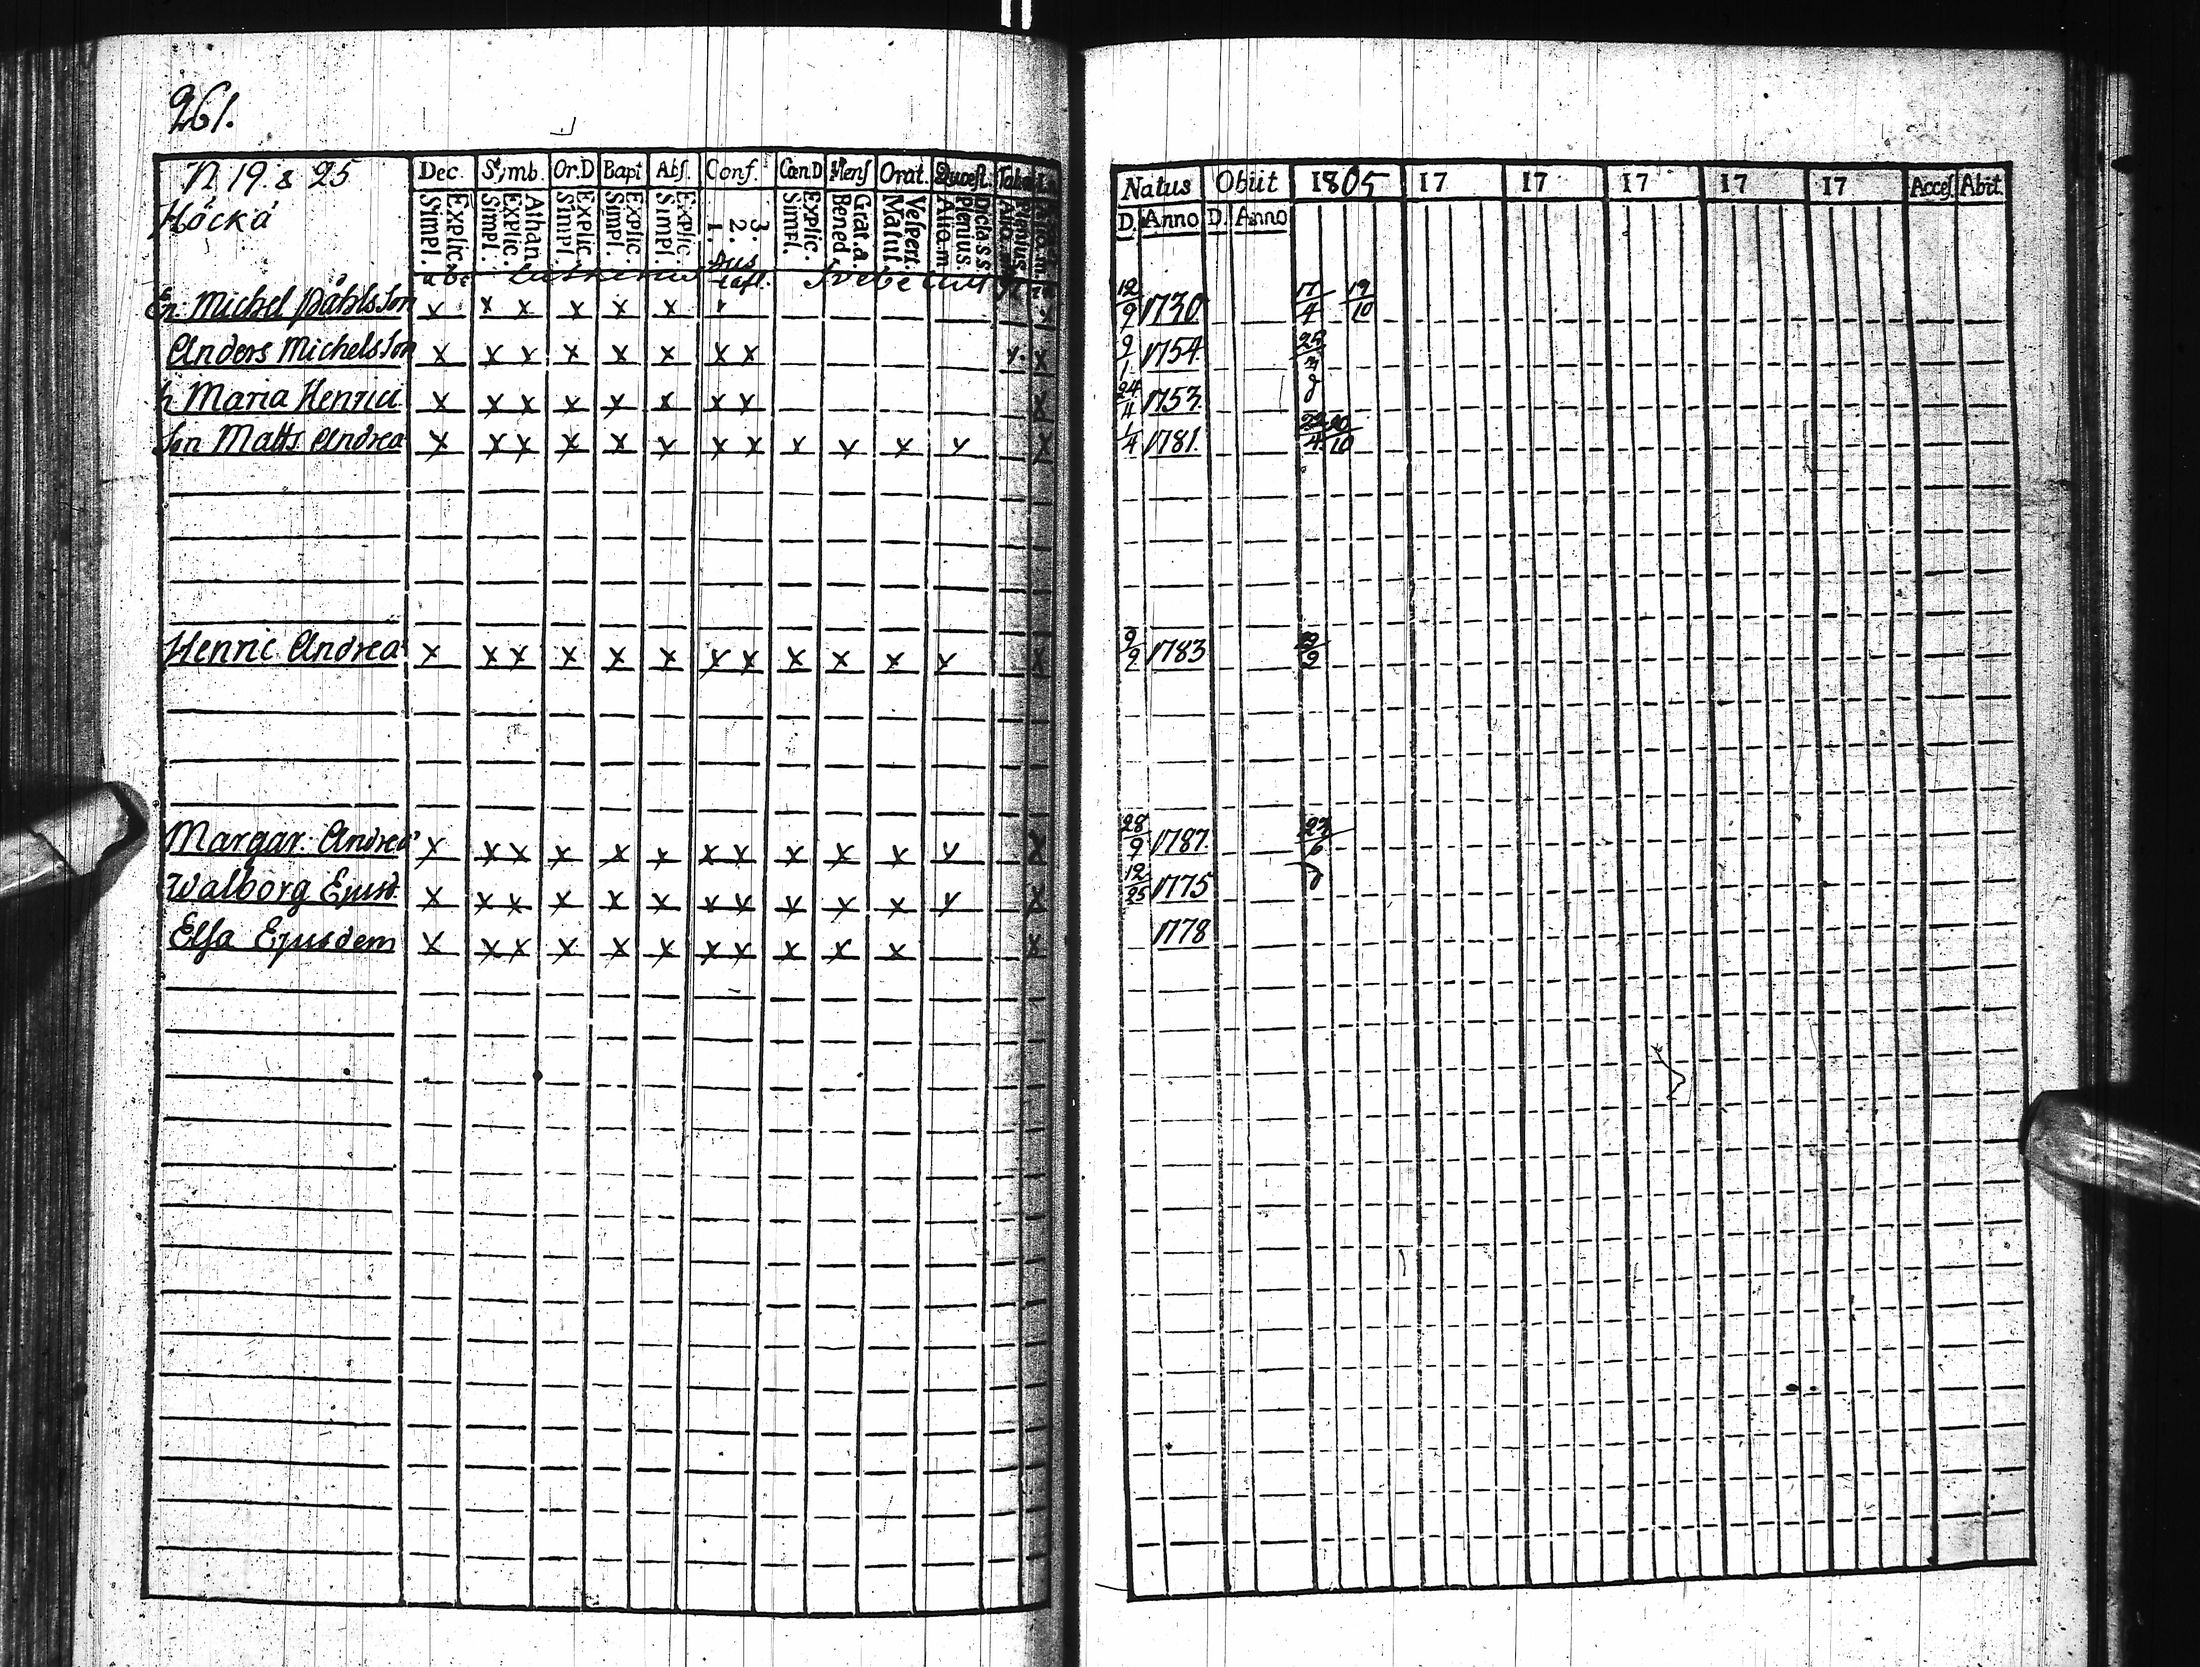 261.
N 19 & 25
Höckä
Dec. Simb. Or.D Bapt Abs. Conf. Cœn.D Mens Orat. Quæst.
Simpl. Explic. Simpl. Explic. Athan. Simpl. Explic. Simpl. Explic. Simpl Explic. 1. 2. 3. Simpl. Explic. Bened. Grat. a. Matut Vespert. Alio. m. Plenius. Dicta. s. s.
abc Lutherus Hus tafl. Svebelius
En. Michel Påhlsson x x x x x x
Anders Michelsson x x x x x x x x x
h Maria Henrici x x x x x x x x x
Son Matts Andreæ x x x x x x x x x x x x x
Henric Andreæ x x x x x x x x x x x x x
Margar. Andreæ x x x x x x x x x x x x x
Walborg Ejusd. x x x x x x x x x x x x x
Elsa Ejusdem x x x x x x x x x x x x
Natus Obiit 1805 17 17 17 17 17 Acces. Abit.
D. Anno D. Anno
12/9 1730 17/4 19/10
9/1 1754.
24/4 1753.
1/4 1781. 22/4 20/10
9/2 1783
28/9 1787.
12/25 1775
1778